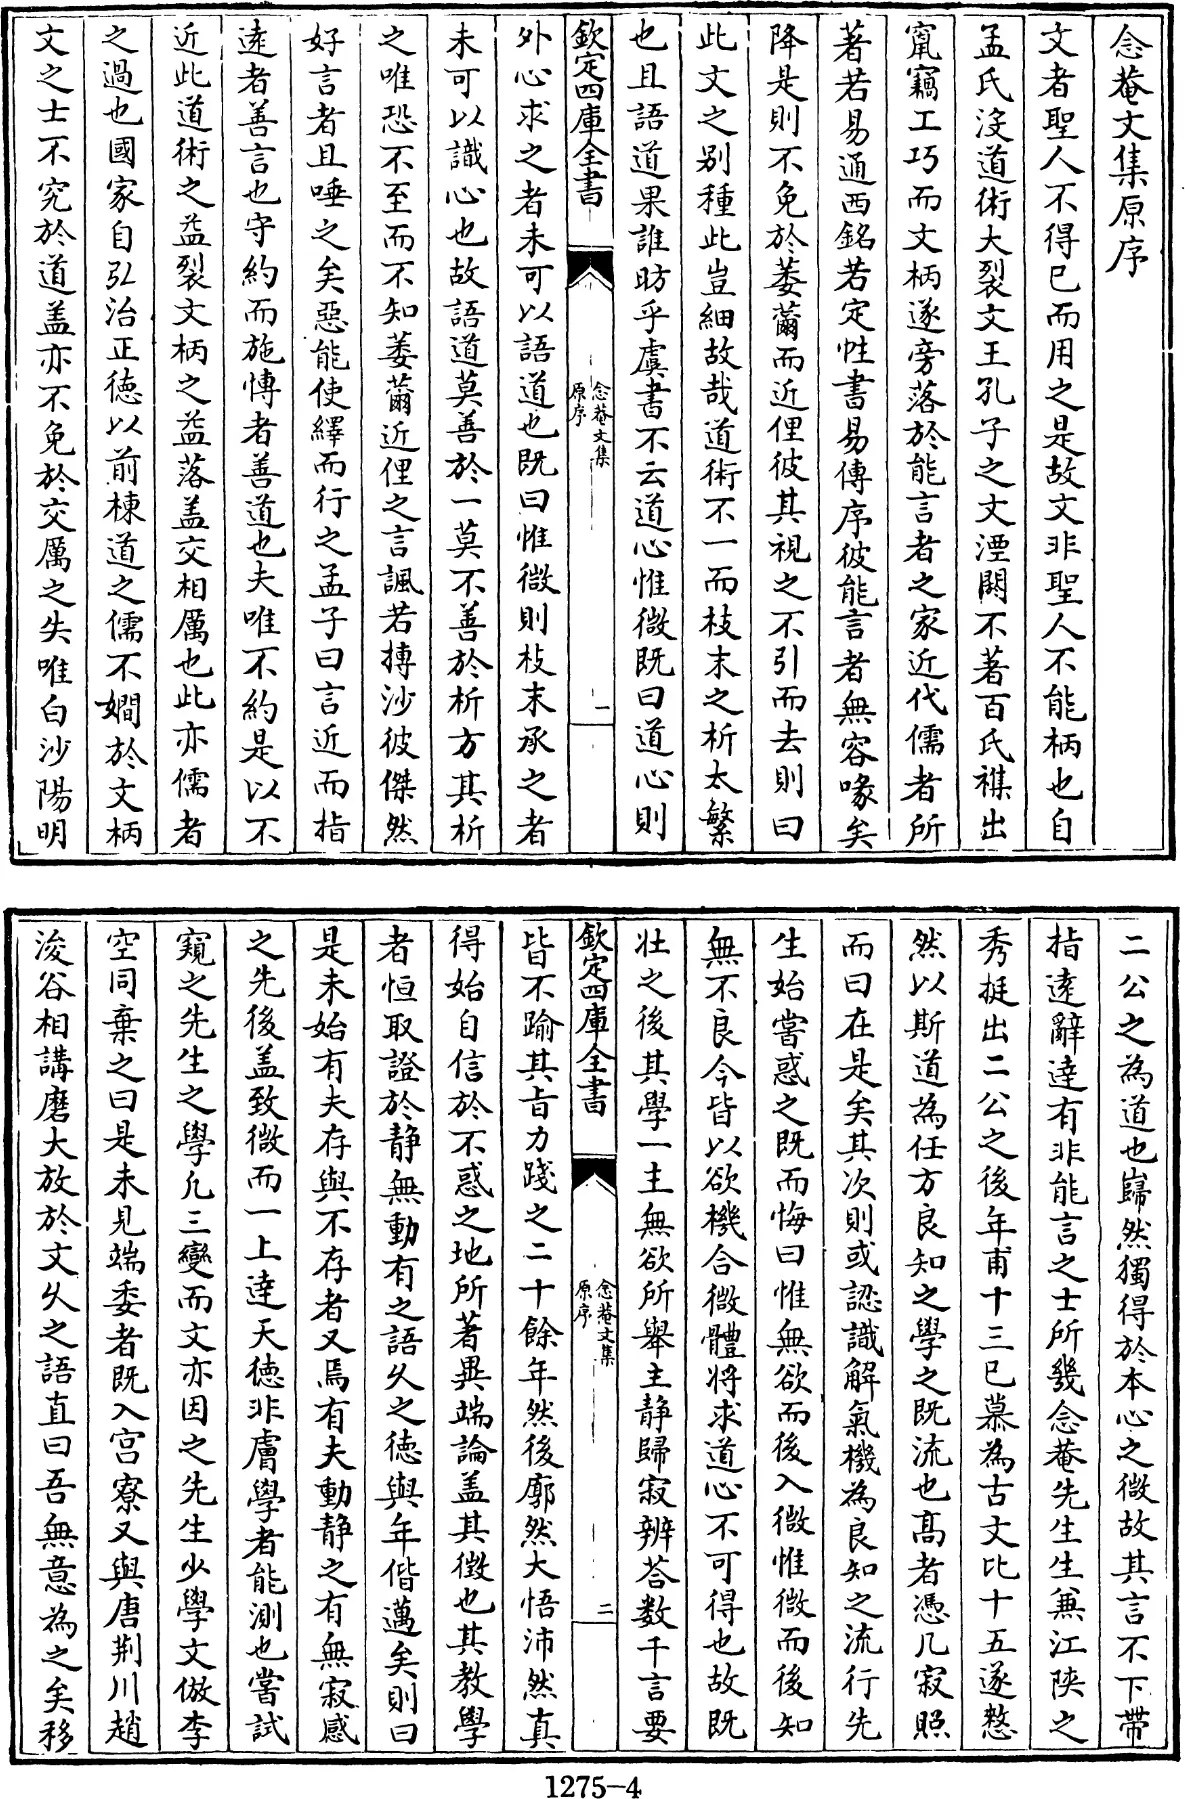 念菴文集原序
文者聖人不得已而用之是故文非聖人不能柄也自
孟氏沒道術大裂文王孔子之文湮閼不著百氏襍出
竄竊工巧而文柄遂旁落於能言者之家近代儒者所
著若易通西銘若定性書易傳序彼能言者無容喙矣
降是則不免於萎薾而近俚彼其視之不引而去則曰
此文之别種此豈細故哉道術不一而枝末之析太繁
也且語道果誰昉乎虞書不云道心惟微既曰道心則
欽定四庫全書
念菴文集
原序
一
外心求之者未可以語道也既曰惟微則枝末承之者
未可以識心也故語道莫善於一莫不善於析方其析
之唯恐不至而不知萎薾近俚之言諷若摶沙彼傑然
好言者且唾之矣惡能使繹而行之孟子曰言近而指
逺者善言也守約而施愽者善道也夫唯不約是以不
近此道術之益裂文柄之益落盖交相厲也此亦儒者
之過也國家自弘治正徳以前楝道之儒不嫺於文柄
文之士不究於道盖亦不免於交厲之失唯白沙陽明
二公之為道也巋然獨得於本心之微故其言不下帶
指逺辭達有非能言之士所幾念菴先生生兼江陜之
秀挺出二公之後年甫十三已慕為古文比十五遂慭
然以斯道為任方良知之學之既流也髙者憑几寂照
而曰在是矣其次則或認識解氣機為良知之流行先
生始嘗惑之既而悔曰惟無欲而後入微惟微而後知
無不良今皆以欲機合微體將求道心不可得也故既
壯之後其學一主無欲所舉主静歸寂辨荅數千言要
欽定四庫全書
念菴文集
原序
二
皆不踰其㫖力踐之二十餘年然後廓然大悟沛然真
得始自信於不惑之地所著異端論盖其徴也其教學
者恒取證於静無動有之語乆之徳與年偕邁矣則曰
是未始有夫存與不存者又焉有夫動静之有無寂感
之先後盖致微而一上達天徳非膚學者能測也嘗試
窺之先生之學凡三變而文亦因之先生少學文倣李
空同棄之曰是未見端委者既入宫寮又與唐荆川趙
浚谷相講磨大放於文乆之語直曰吾無意為之矣移
1275-4